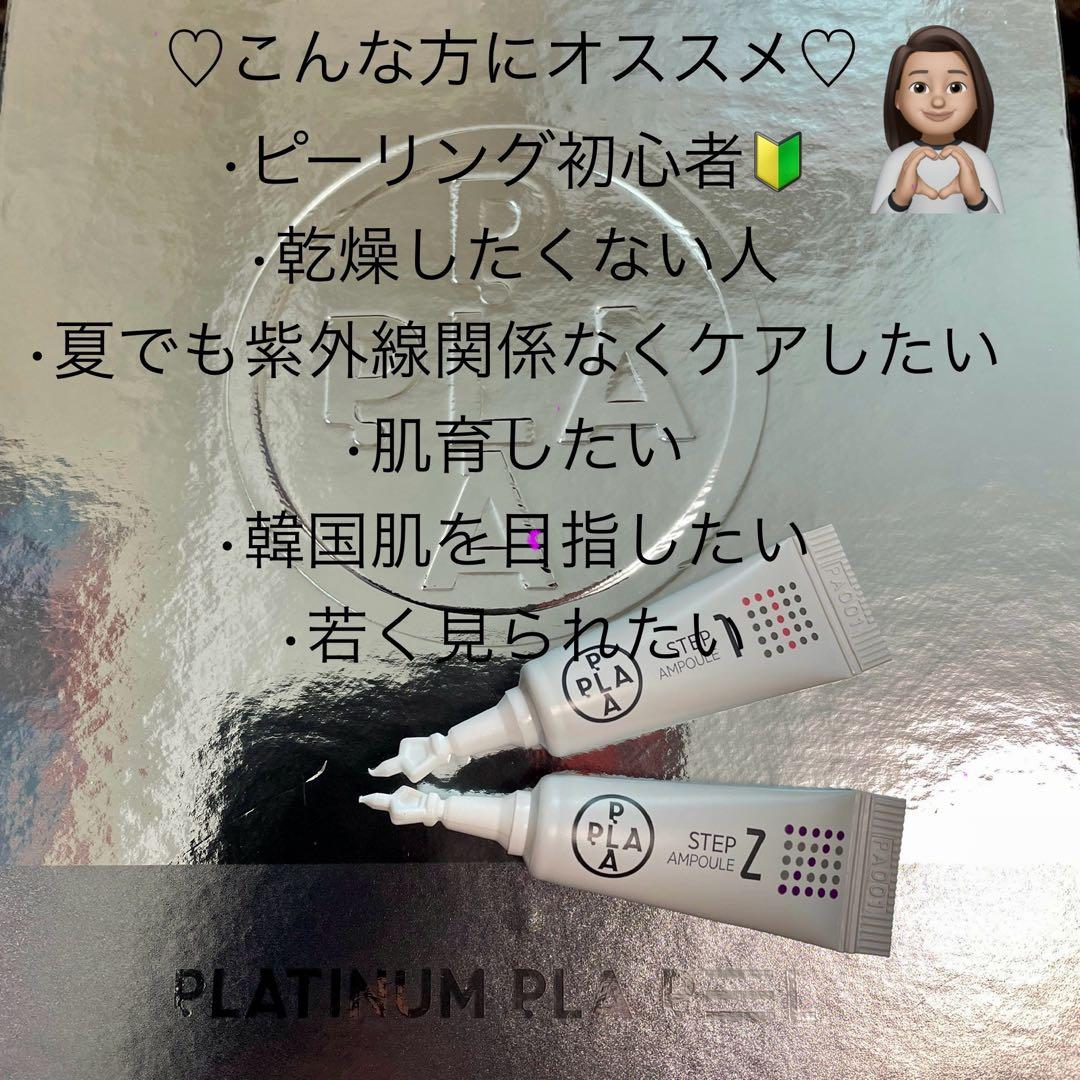 ♡こんな方にオススメ♡
・ピーリング初心者🔰
・乾燥したくない人
・夏でも紫外線関係なくケアしたい
・肌育したい
・韓国肌を目指したい
・若く見られたい
P
PLA
A
P
PLA
A
STEP 1
AMPOULE
PA001
P
PLA
A
STEP 2
AMPOULE
PA001
PLATINUM PLA PEEL